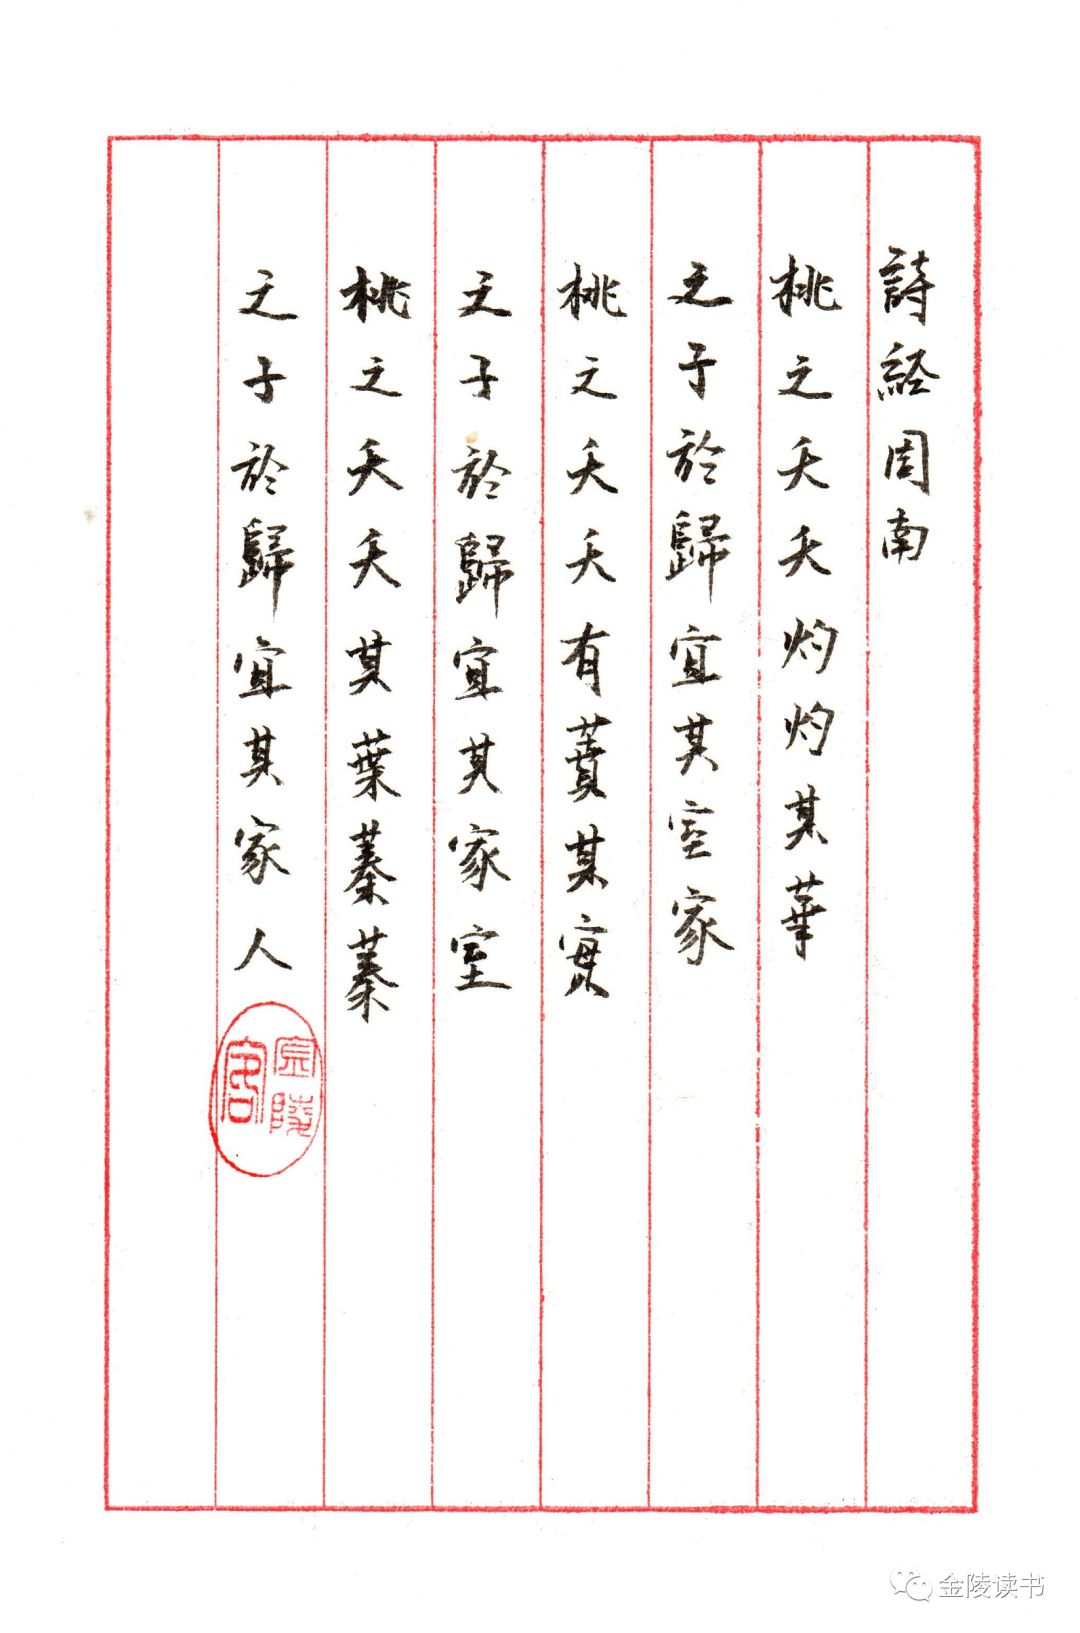 詩經周南
桃之夭夭灼灼其華
之子於歸宜其室家
桃之夭夭有蕡其實
之子於歸宜其家室
桃之夭夭其葉蓁蓁
之子於歸宜其家人
金陵客
金陵读书